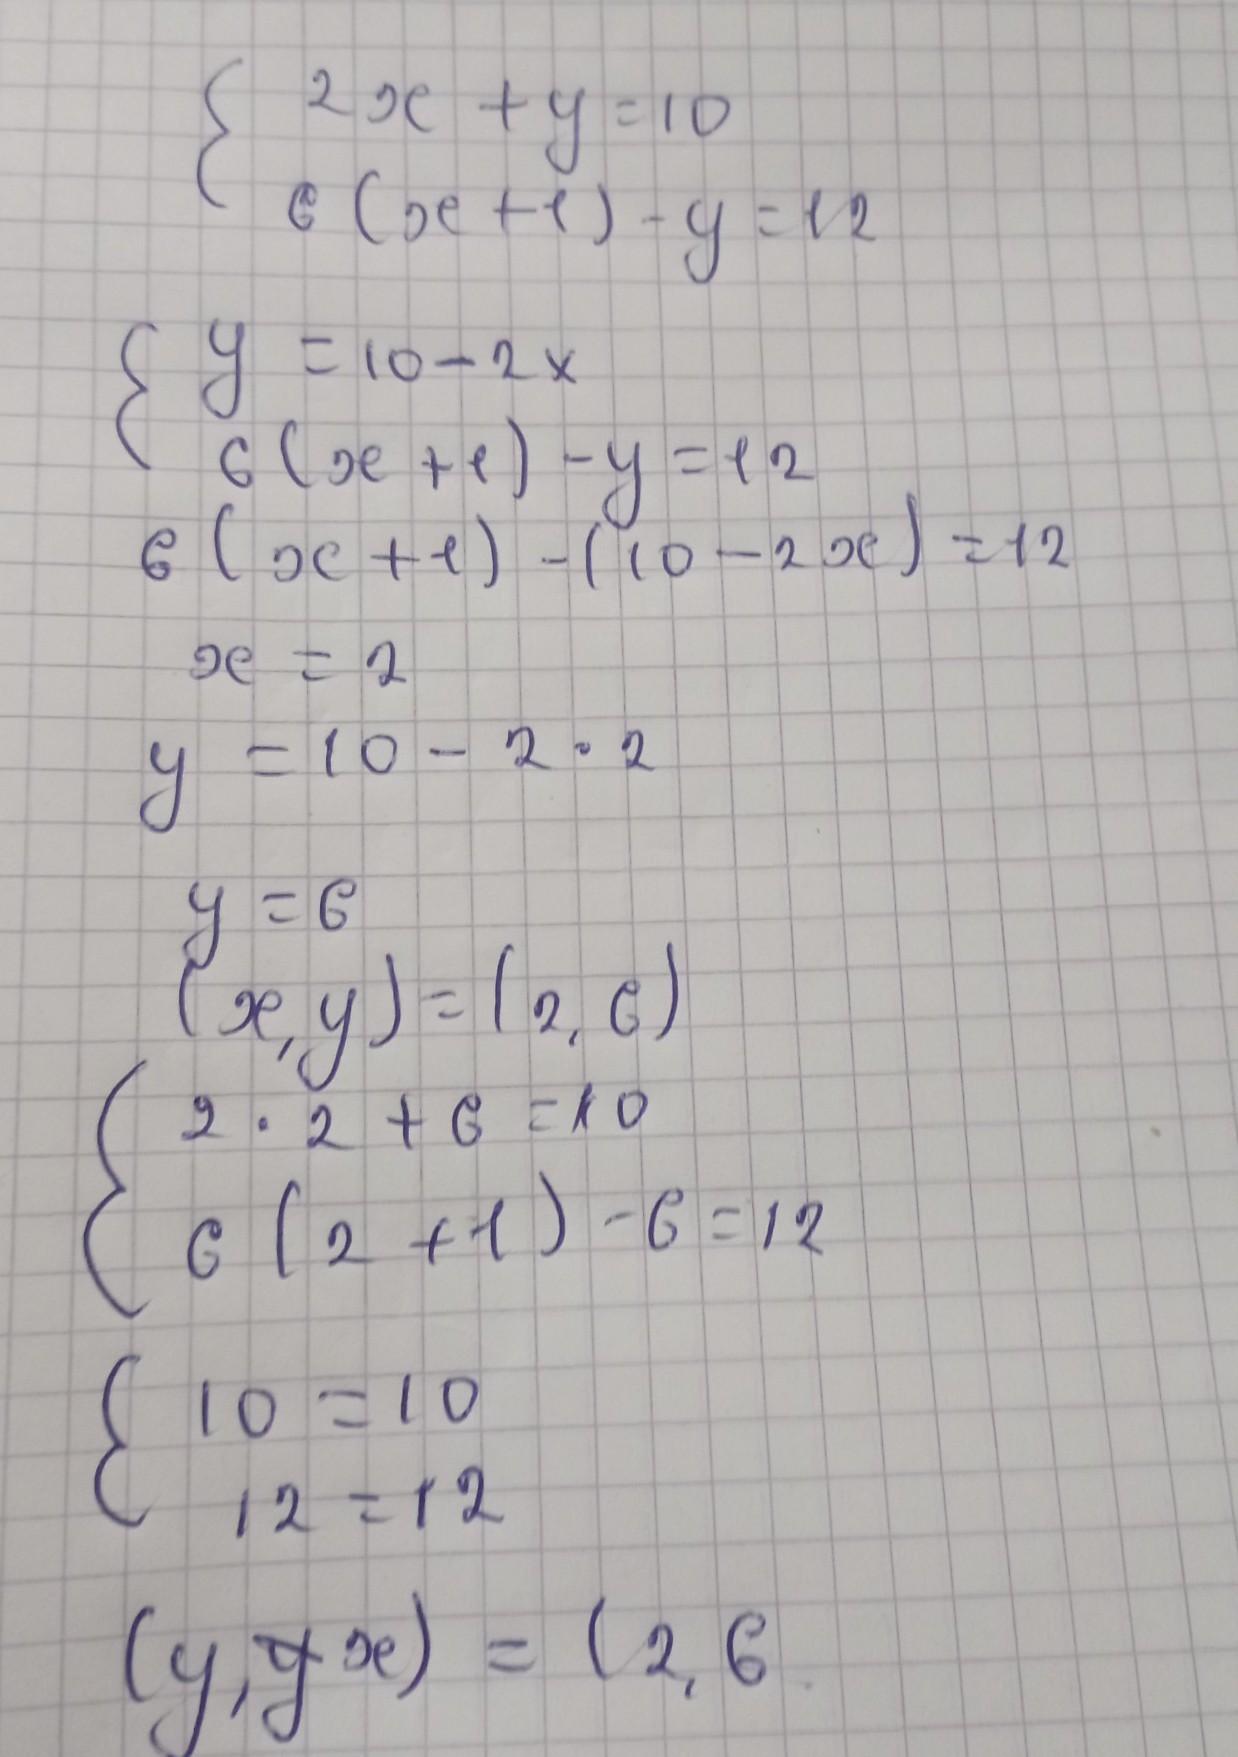 { 2x + y = 10
6(x+1) - y = 12
{ y = 10 - 2x
6(x+1) - y = 12
6(x+1) - (10 - 2x) = 12
x = 2
y = 10 - 2 · 2
y = 6
(x, y) = (2, 6)
{ 2 · 2 + 6 = 10
6(2+1) - 6 = 12
{ 10 = 10
12 = 12
(y, x) = (2, 6